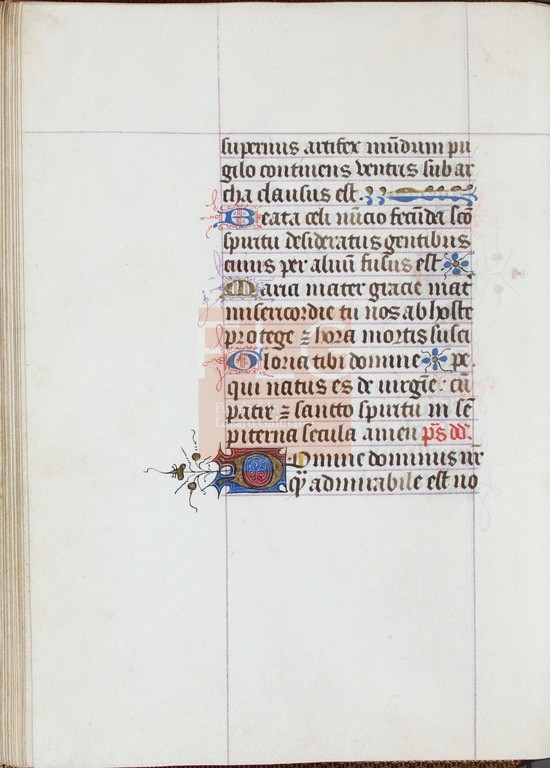 supernus artifex mũdum pu
gilo continens ventris sub ar
cha clausus est.
Beata celi nũcio fecũda scõ
spiritu desideratus gentibus
cuius per aluũ fusus est
Maria mater gracie mat̃
misericordie tu nos ab hoste
protege ⁊ hora mortis susci
Gloria tibi domine pe.
qui natus es de uirgĩe: cũ
patre ⁊ sancto spiritu in sẽ
piterna secula amen p̃s dd̃.
Domine dominus nr̃
q̃ admirabile est no